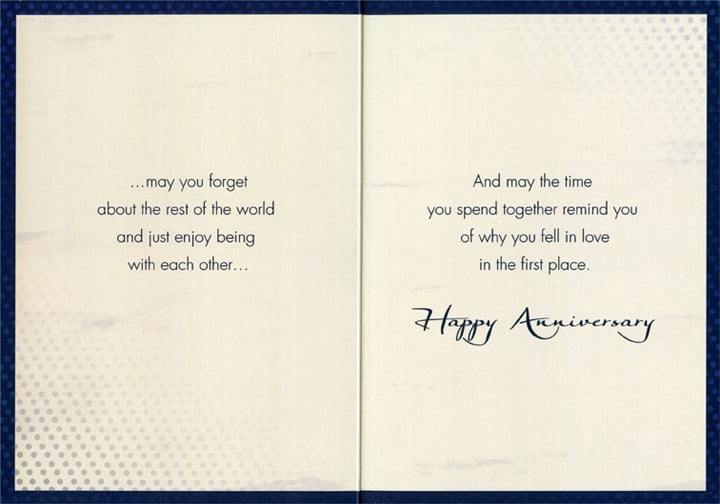 ...may you forget
about the rest of the world
and just enjoy being
with each other...
And may the time
you spend together remind you
of why you fell in love
in the first place.
Happy Anniversary